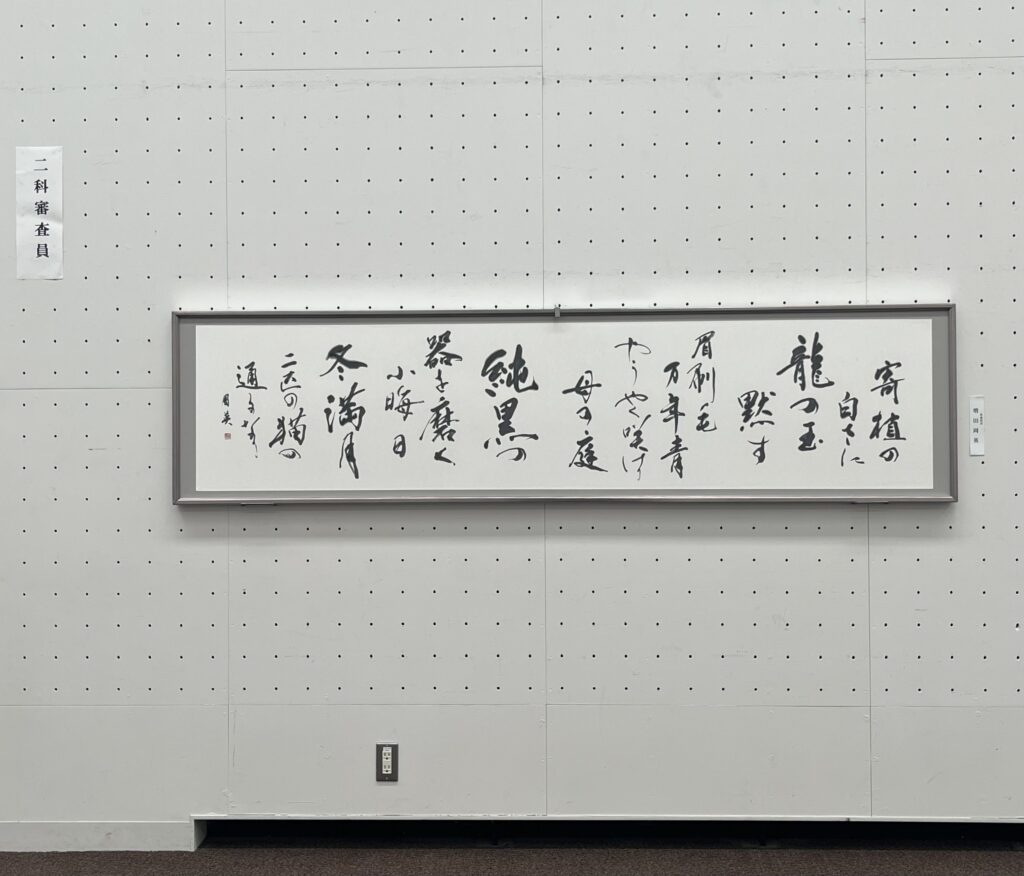 二科審査員
寄植の
白さに
龍の玉
黙す
眉刷毛
万年青
やうやく咲けり
母の庭
純黒の
器を磨く
小晦日
冬満月
二匹の猫の
通り